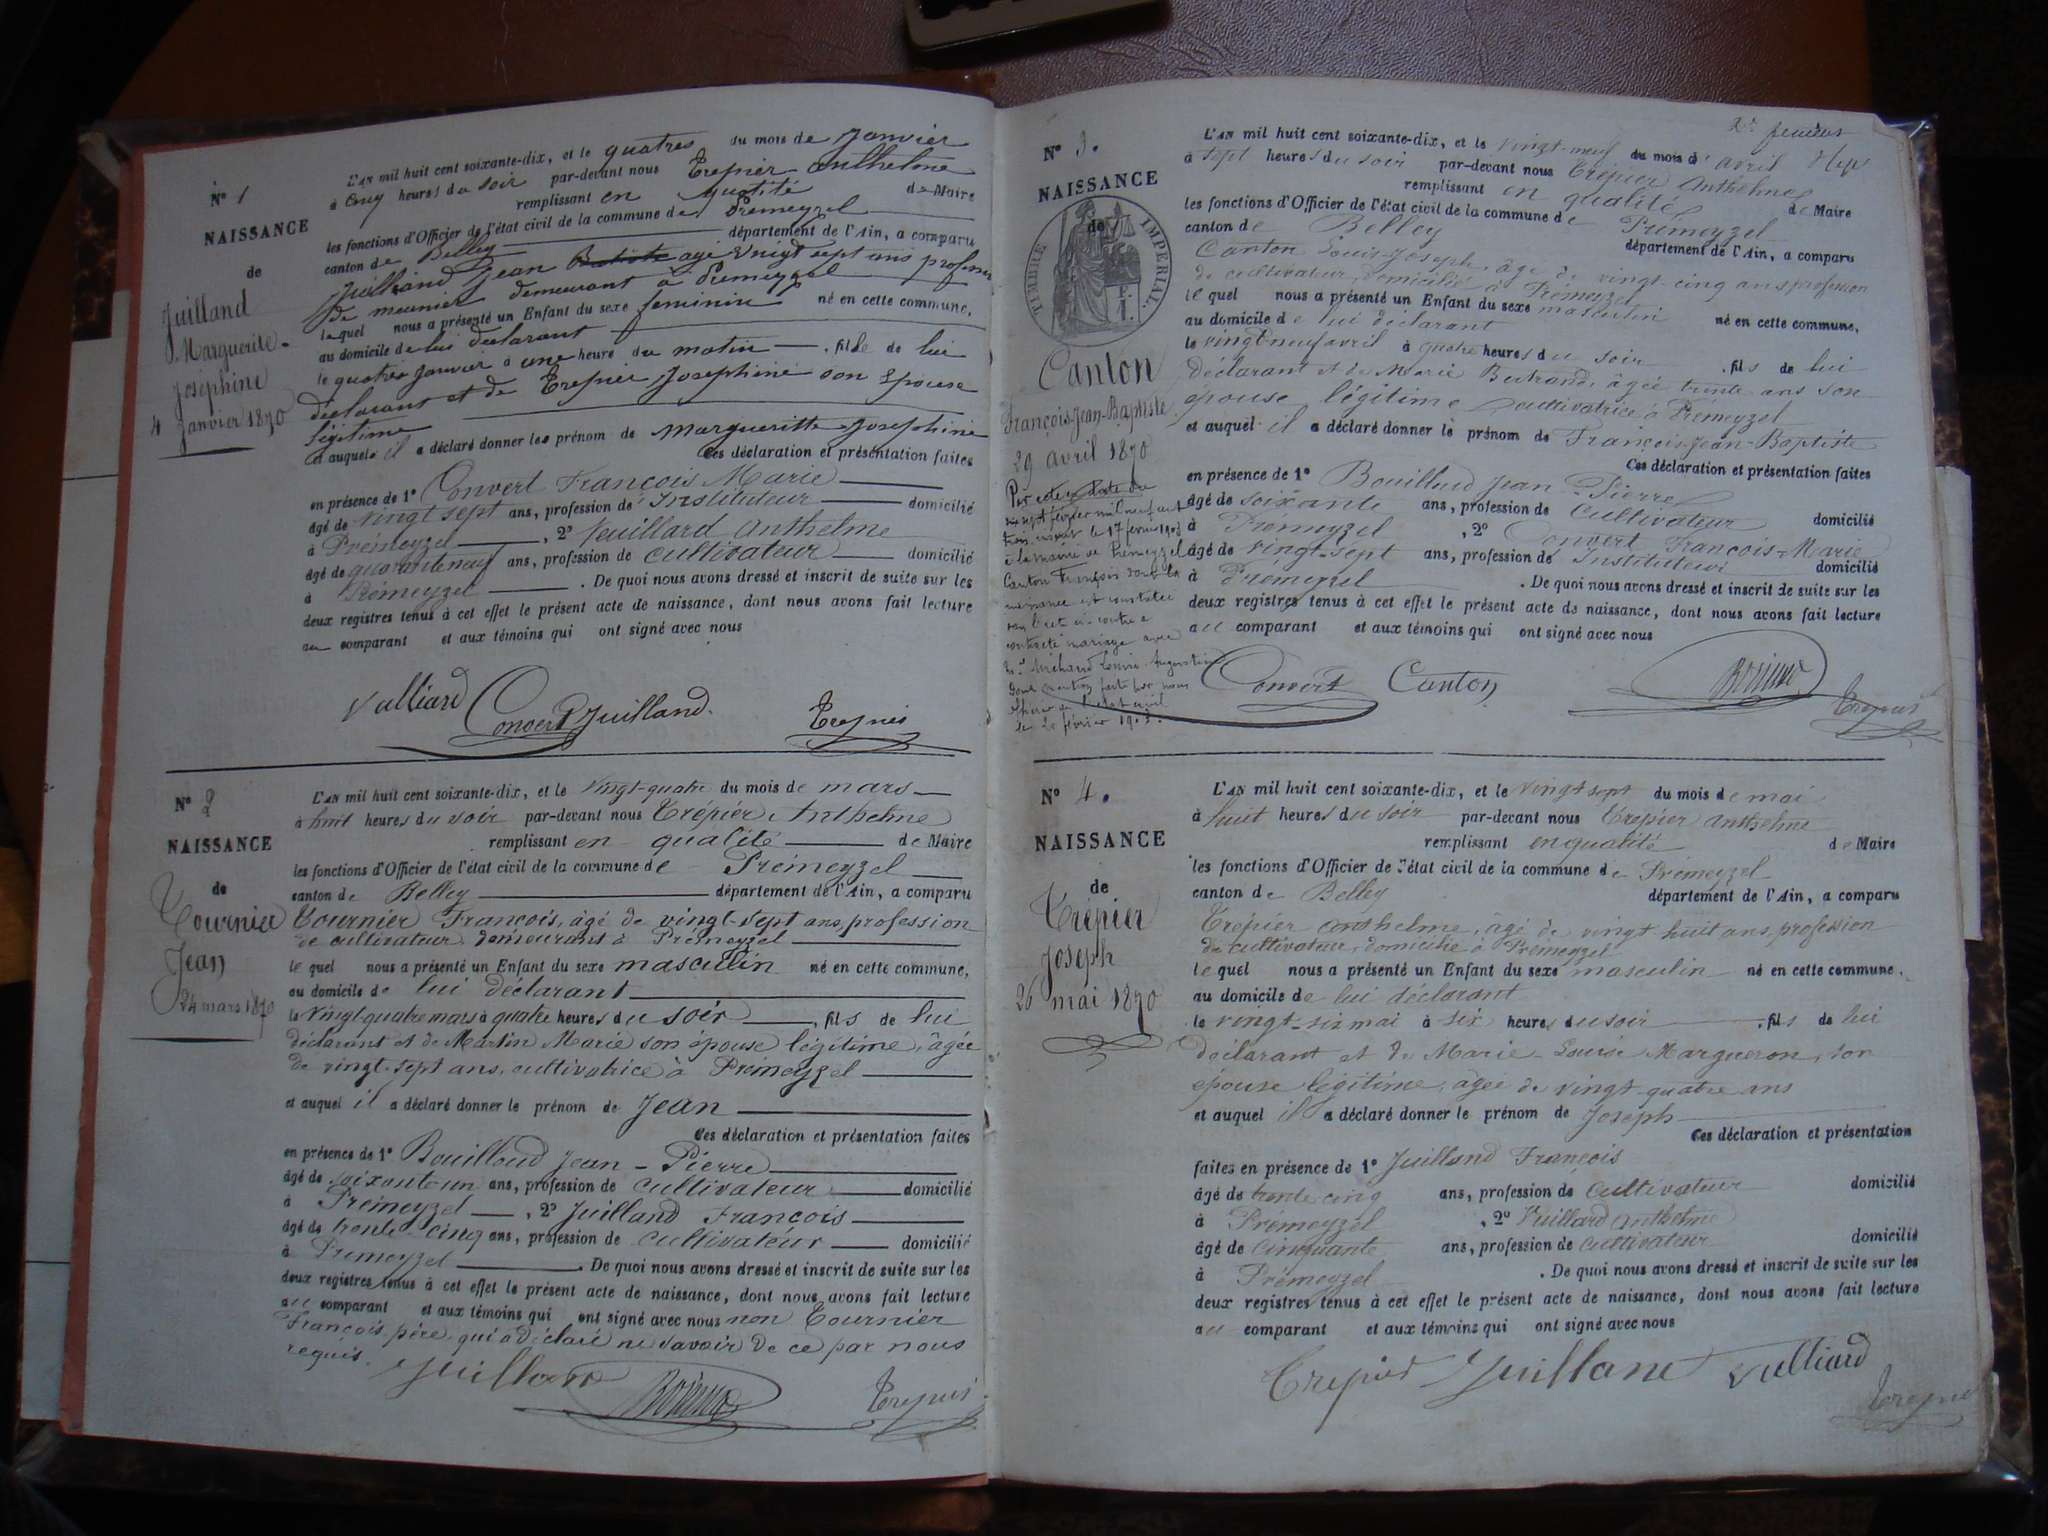 N° 1
NAISSANCE
de
Juilland
Marguerite
Joséphine
4 Janvier 1870
L'AN mil huit cent soixante-dix, et le quatres du mois de Janvier
à heures du soir par-devant nous Trepier Anthelme
remplissant en qualité de Maire
les fonctions d'Officier de l'état civil de la commune de Prémeyzel
canton de Belley département de l'Ain, a comparu
Juilliand Jean Batiste agé vingt sept ans profession
de meunier demeurant à Premeyzel
lequel nous a présenté un Enfant du sexe feminin né en cette commune,
au domicile de lui déclarant
le quatres Janvier à une heure du matin , fille de lui
déclarant et de Trepier Josephine son Epouse
légitime
et auquel il a déclaré donner les prénom de Margueritte Josephine
Ces déclaration et présentation faites
en présence de 1° Convert François Marie
âgé de vingt sept ans, profession de Instituteur domicilié
à Prémeyzel , 2° Vuillard Anthelme
âgé de quarante neuf ans, profession de Cultivateur domicilié
à Prémeyzel . De quoi nous avons dressé et inscrit de suite sur les
deux registres tenus à cet effet le présent acte de naissance, dont nous avons fait lecture
au comparant et aux témoins qui ont signé avec nous
Vulliard Convert Juilland. Trepier
N° 2
NAISSANCE
de
Tournier
Jean
24 mars 1870
L'AN mil huit cent soixante-dix, et le vingt-quatre du mois de mars
à huit heures du soir par-devant nous Trépier Anthelme
remplissant en qualité de Maire
les fonctions d'Officier de l'état civil de la commune de Prémeyzel
canton de Belley département de l'Ain, a comparu
Tournier François, âgé de vingt-sept ans, profession
de cultivateur, demeurant à Prémeyzel
le quel nous a présenté un Enfant du sexe masculin né en cette commune,
au domicile de lui déclarant
le vingt-quatre mars à quatre heures du soir , fils de lui
déclarant et de Martin Marie son épouse légitime, âgée
de vingt-sept ans, cultivatrice à Prémeyzel
et auquel il a déclaré donner le prénom de Jean
Ces déclaration et présentation faites
en présence de 1° Bouilloud Jean-Pierre
âgé de soixante un ans, profession de cultivateur domicilié
à Prémeyzel , 2° Juilland François
âgé de trente-cinq ans, profession de cultivateur domicilié
à Prémeyzel . De quoi nous avons dressé et inscrit de suite sur les
deux registres tenus à cet effet le présent acte de naissance, dont nous avons fait lecture
au comparant et aux témoins qui ont signé avec nous non Tournier
François, père, qui a déclaré ne savoir de ce par nous
requis.
Juilland Trepier
2e feuillet
N° 3.
NAISSANCE
de
TIMBRE IMPERIAL.
Canton
François-Jean-Baptiste
29 avril 1870
Par acte en date du
dix sept février mil neuf cent
trois inscrit le 17 février 1903
à la mairie de Prémeyzel
Canton François dont la
naissance est constatée
dans l'acte ci-contre a
contracté mariage avec
Michaud Louise Augustine
Dont mention faite par nous
officier de l'état civil
le 20 février 1903.
L'AN mil huit cent soixante-dix, et le vingt-neuf du mois d'avril
à sept heures du soir par-devant nous Trépier Anthelme
remplissant en qualité de Maire
les fonctions d'Officier de l'état civil de la commune de Prémeyzel
canton de Belley département de l'Ain, a comparu
Canton Louis-Joseph, âgé de vingt-cinq ans profession
de cultivateur, domicilié à Prémeyzel
le quel nous a présenté un Enfant du sexe masculin né en cette commune,
au domicile de lui déclarant
le vingt neuf avril à quatre heures du soir , fils de lui
déclarant et de Marie Bertrand, âgée trente ans son
épouse légitime cultivatrice à Prémeyzel
et auquel il a déclaré donner le prénom de François-Jean-Baptiste
Ces déclaration et présentation faites
en présence de 1° Bouilloud Jean-Pierre
âgé de soixante ans, profession de Cultivateur domicilié
à Prémeyzel , 2° Convert François-Marie
âgé de vingt-sept ans, profession de Instituteur domicilié
à Prémeyzel . De quoi nous avons dressé et inscrit de suite sur les
deux registres tenus à cet effet le présent acte de naissance, dont nous avons fait lecture
au comparant et aux témoins qui ont signé avec nous
Convert Canton Trepier
N° 4.
NAISSANCE
de
Trépier
Joseph
26 mai 1870
L'AN mil huit cent soixante-dix, et le vingt sept du mois de mai
à huit heures du soir par-devant nous Trepier Anthelme
remplissant en qualité de Maire
les fonctions d'Officier de l'état civil de la commune de Prémeyzel
canton de Belley département de l'Ain, a comparu
Trepier Anthelme, âgé de vingt huit ans, profession
de cultivateur, domicilié à Prémeyzel
le quel nous a présenté un Enfant du sexe masculin né en cette commune,
au domicile de lui déclarant
le vingt-six mai à six heures du soir , fils de lui
déclarant et de Marie-Louise Margueron, son
épouse légitime, âgée de vingt-quatre ans
et auquel il a déclaré donner le prénom de Joseph
Ces déclaration et présentation
faites en présence de 1° Juilland François
âgé de trente cinq ans, profession de Cultivateur domicilié
à Prémeyzel , 2° Vuillard Anthelme
âgé de cinquante ans, profession de cultivateur domicilié
à Prémeyzel . De quoi nous avons dressé et inscrit de suite sur les
deux registres tenus à cet effet le présent acte de naissance, dont nous avons fait lecture
au comparant et aux témoins qui ont signé avec nous
Trepier Juilland Vulliard
Trepier